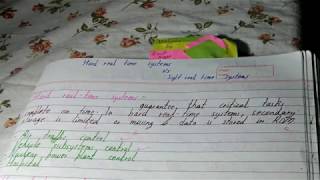 Hard real time systems
vs
Soft real time systems
Hard real time systems
guarantee, that critical tasks
complete on time. In hard real time systems, secondary
storage is limited or missing & data is stored in ROM.
Air traffic control
Vehicle subsystems control
Nuclear power plant control